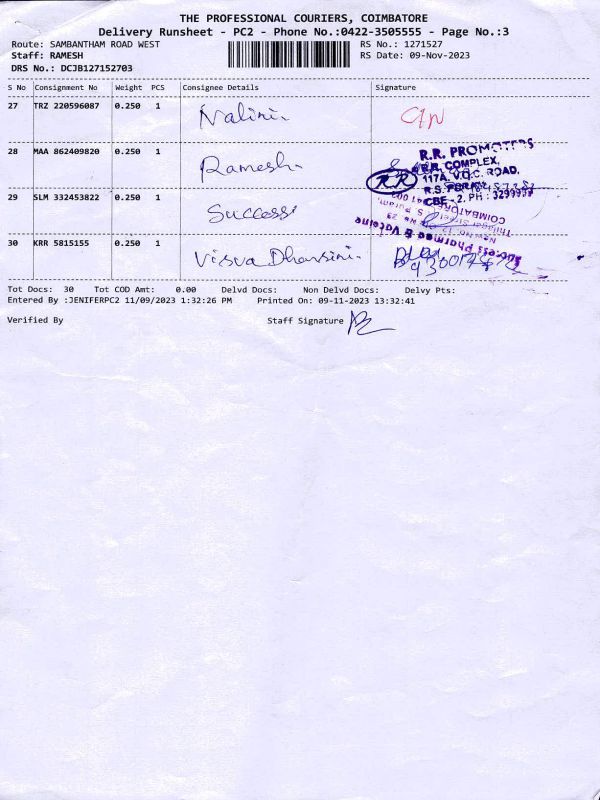 THE PROFESSIONAL COURIERS, COIMBATORE
Delivery Runsheet - PC2 - Phone No.:0422-3505555 - Page No.:3
Route: SAMBANTHAM ROAD WEST RS No.: 1271527
Staff: RAMESH RS Date: 09-Nov-2023
DRS No.: DCJB127152703
S No Consignment No Weight PCS Consignee Details Signature
27 TRZ 220596087 0.250 1 Nalini.
28 MAA 862409820 0.250 1 Ramesh.
R.R. PROMOTERS
R.R. COMPLEX,
RR 117A, V.O.C. ROAD,
R.S. PURAM,
CBE - 2. PH : 3299999
29 SLM 332453822 0.250 1 Success
Success Pharmed & Vaccine
30 KRR 5815155 0.250 1 Visva Dharsini.
Tot Docs: 30 Tot COD Amt: 0.00 Delvd Docs: Non Delvd Docs: Delvy Pts:
Entered By :JENIFERPC2 11/09/2023 1:32:26 PM Printed On: 09-11-2023 13:32:41
Verified By Staff Signature